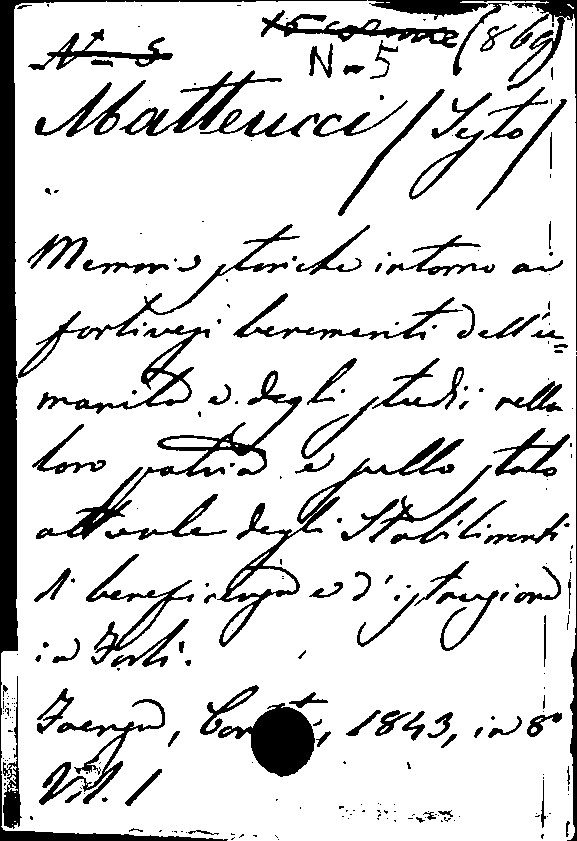 (869)
N-5
N-5
Matteucci / Sisto /
Memorie storiche intorno ai
forlivesi benemeriti dell'u=
manità e degli studii nella
loro patria e sullo stato
attuale degli Stabilimenti
di beneficenza e d'istruzione
in Forlì.
Faenza, 1843, in 8°
Vol. 1